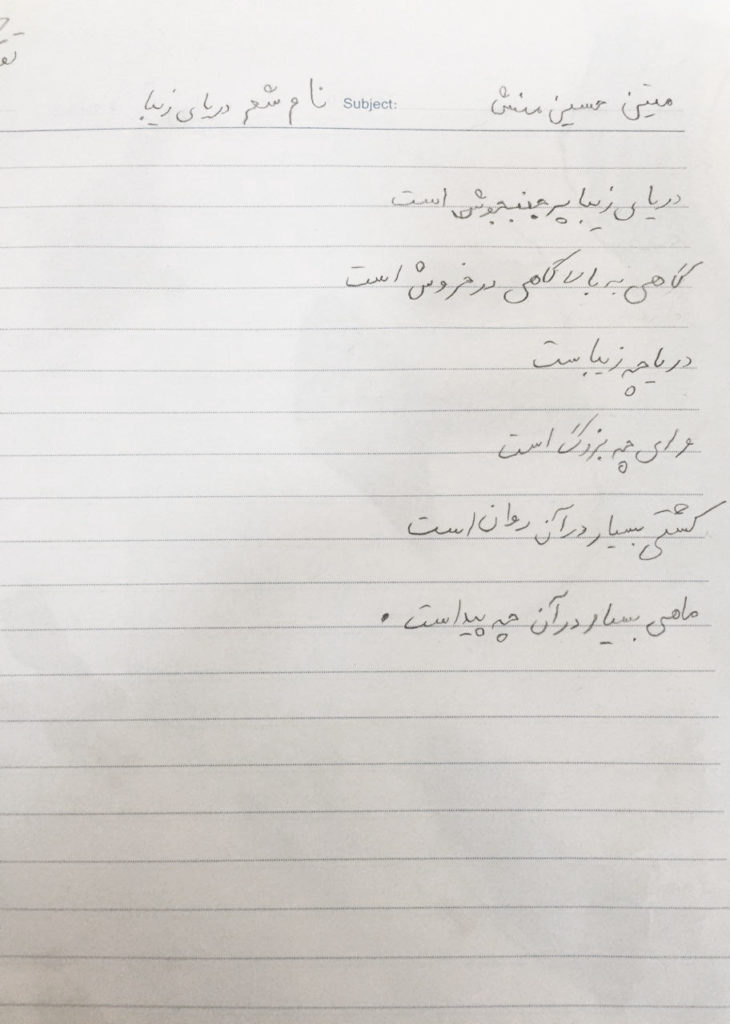 متین حسین منش Subject: نام شعر دریای زیبا
دریای زیبا پر جنبجوش است
گاهی به بالا گاهی در خروش است
دریا چه زیباست
وای چه بزرگ است
کشتی بسیار در آن روان است
ماهی بسیار در آن چه پیداست .